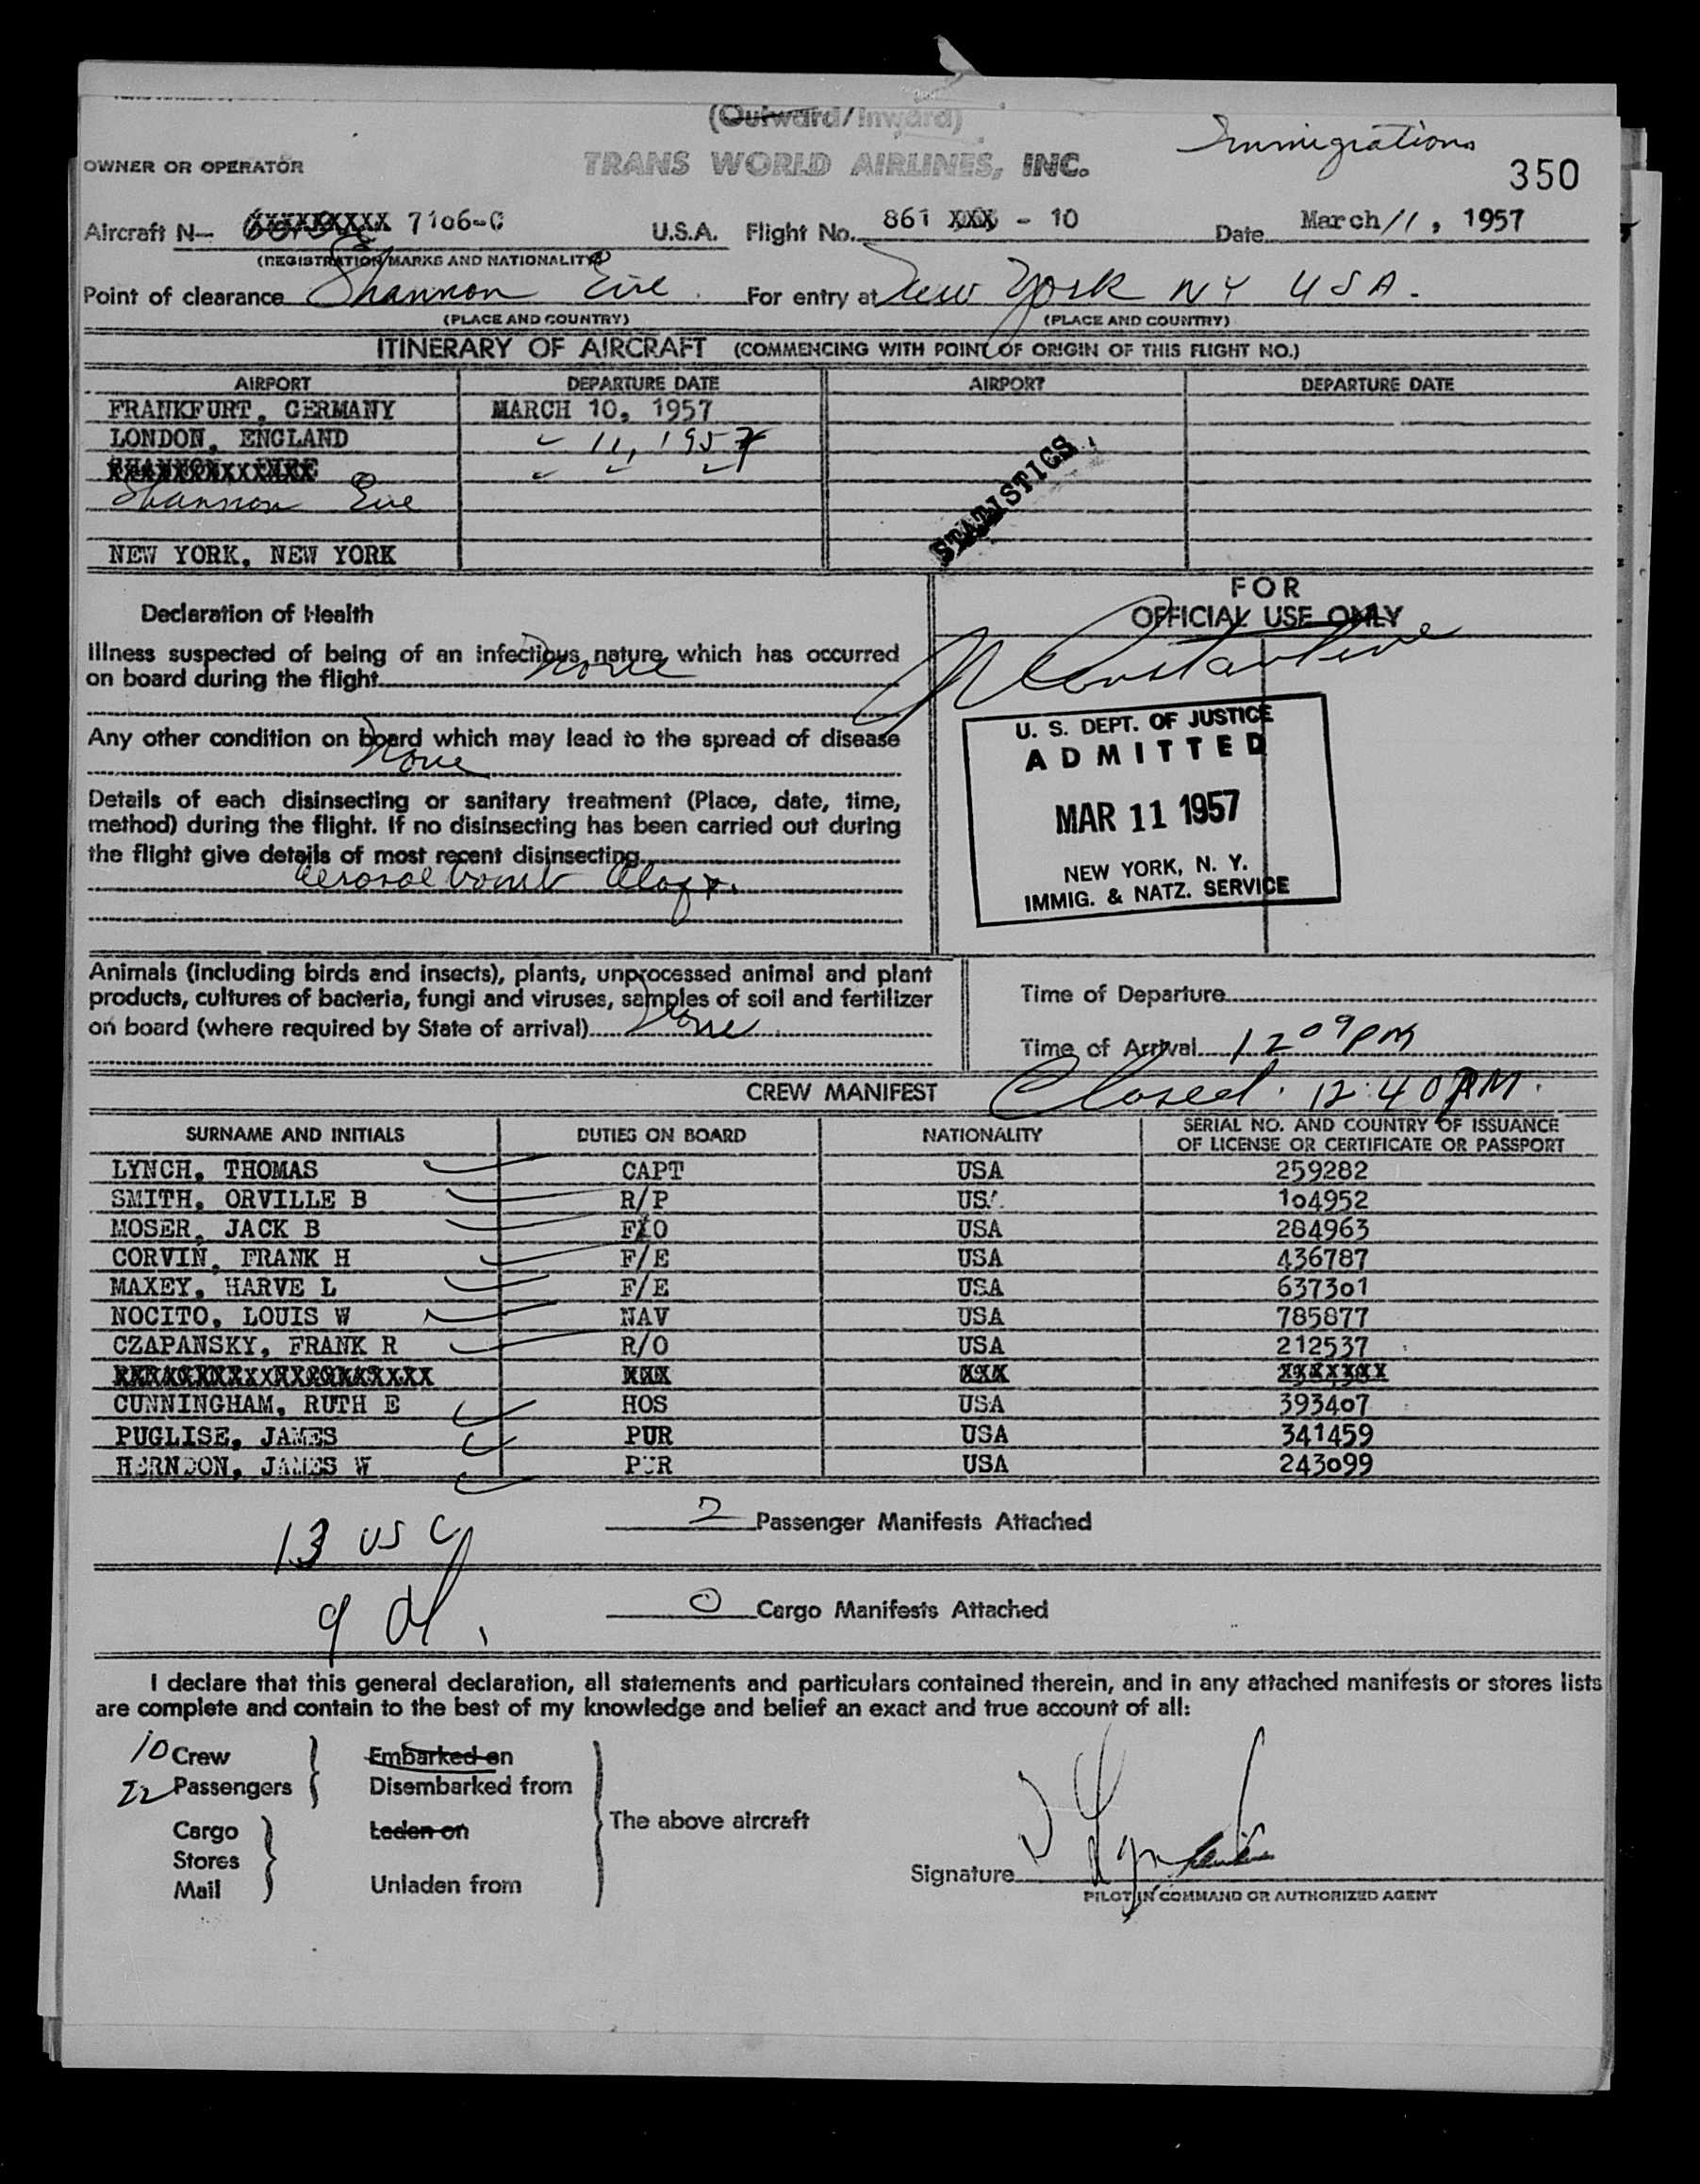 (Outward/Inward)
Immigrations
OWNER OR OPERATOR TRANS WORLD AIRLINES, INC. 350
Aircraft N- 7106-C U.S.A. Flight No. 861 XXX - 10 Date March 11, 1957
(REGISTRATION MARKS AND NATIONALITY)
Point of clearance Shannon Eire For entry at New York NY USA.
(PLACE AND COUNTRY) (PLACE AND COUNTRY)
ITINERARY OF AIRCRAFT (COMMENCING WITH POINT OF ORIGIN OF THIS FLIGHT NO.)
AIRPORT DEPARTURE DATE AIRPORT DEPARTURE DATE
FRANKFURT, GERMANY MARCH 10, 1957
LONDON, ENGLAND " 11, 1957
" " "
Shannon Eire
STATISTICS
NEW YORK, NEW YORK
FOR
OFFICIAL USE ONLY
Declaration of Health
Illness suspected of being of an infectious nature which has occurred
on board during the flight None
Any other condition on board which may lead to the spread of disease
None
Details of each disinsecting or sanitary treatment (Place, date, time,
method) during the flight. If no disinsecting has been carried out during
the flight give details of most recent disinsecting
Aerosol bomb
N Constantine
U. S. DEPT. OF JUSTICE
ADMITTED
MAR 11 1957
NEW YORK, N. Y.
IMMIG. & NATZ. SERVICE
Animals (including birds and insects), plants, unprocessed animal and plant
products, cultures of bacteria, fungi and viruses, samples of soil and fertilizer
on board (where required by State of arrival) None
Time of Departure
Time of Arrival 12 09 PM
CREW MANIFEST Closed. 12:40 PM.
SURNAME AND INITIALS DUTIES ON BOARD NATIONALITY SERIAL NO. AND COUNTRY OF ISSUANCE
OF LICENSE OR CERTIFICATE OR PASSPORT
LYNCH, THOMAS CAPT USA 259282
SMITH, ORVILLE B R/P USA 104952
MOSER, JACK B F/O USA 284963
CORVIN, FRANK H F/E USA 436787
MAXEY, HARVE L F/E USA 637301
NOCITO, LOUIS W NAV USA 785877
CZAPANSKY, FRANK R R/O USA 212537
CUNNINGHAM, RUTH E HOS USA 393407
PUGLISE, JAMES PUR USA 341459
HERNDON, JAMES W PUR USA 243099
2 Passenger Manifests Attached
13 USC
0 Cargo Manifests Attached
9 al.
I declare that this general declaration, all statements and particulars contained therein, and in any attached manifests or stores lists
are complete and contain to the best of my knowledge and belief an exact and true account of all:
10 Crew Embarked on
22 Passengers Disembarked from
The above aircraft
Cargo Laden on
Stores
Mail Unladen from
Signature
PILOT IN COMMAND OR AUTHORIZED AGENT